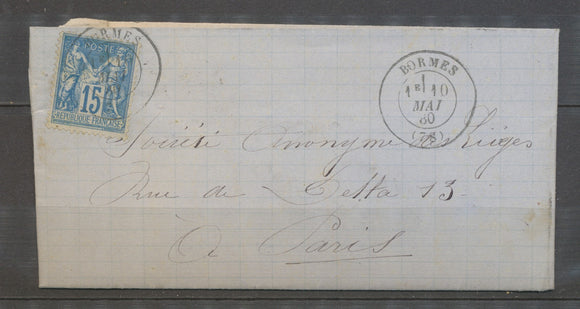 BORMES
POSTE
15
REPUBLIQUE FRANÇAISE
BORMES
1E 10
MAI
80
(78)
Société Anonyme des Lièges
Rue de Delta 13
à Paris